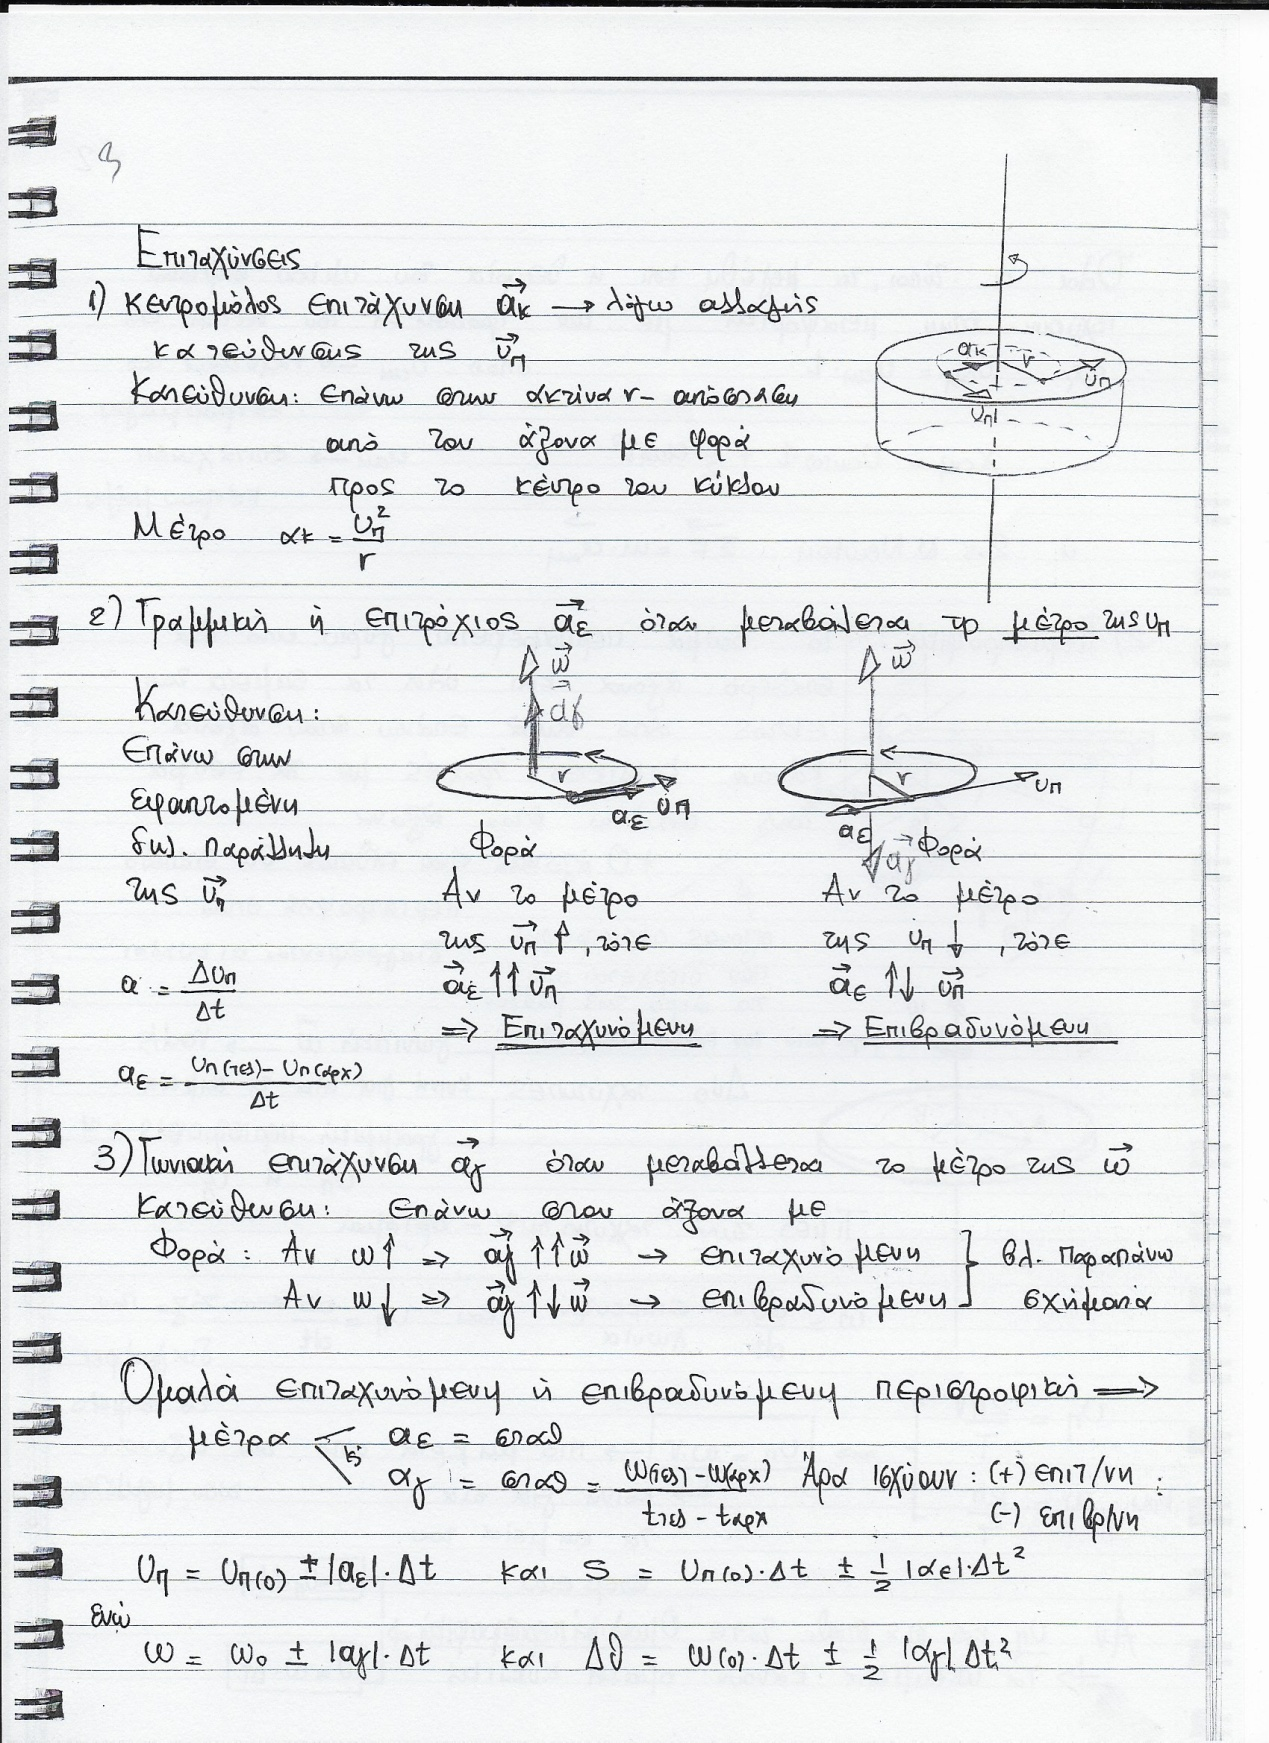 3
Επιταχύνσεις
1) κεντρομόλος επιτάχυνση a⃗κ → λόγω αλλαγής
κατεύθυνσης της υ⃗π
Κατεύθυνση: επάνω στην ακτίνα r - απόσταση
από τον άξονα με φορά
προς το κέντρο του κύκλου
Μέτρο ακ = υπ²/r
ακ r υπ
υπ
2) Γραμμική ή επιτρόχιος a⃗ε όταν μεταβάλλεται το μέτρο της υπ
ω⃗ ω⃗
α⃗γ
Κατεύθυνση:
Επάνω στην
εφαπτομένη
δηλ. παράλληλη
της υ⃗π
r aε υπ
r υπ aε a⃗γ
Φορά
Αν το μέτρο
της υ⃗π ↑, τότε
a⃗ε ↑↑ υ⃗π
=> Επιταχυνόμενη
Φορά
Αν το μέτρο
της υπ ↓, τότε
a⃗ε ↑↓ υ⃗π
=> Επιβραδυνόμενη
a = Δυπ/Δt
aε = (υπ(τελ) - υπ(αρχ))/Δt
3) Γωνιακή επιτάχυνση a⃗γ όταν μεταβάλλεται το μέτρο της ω⃗
Κατεύθυνση: επάνω στον άξονα με
Φορά: Αν ω↑ => a⃗γ ↑↑ ω⃗ → επιταχυνόμενη } βλ. παραπάνω
Αν ω↓ => a⃗γ ↑↓ ω⃗ → επιβραδυνόμενη } σχήματα
Ομαλά επιταχυνόμενη ή επιβραδυνόμενη περιστροφική =>
μέτρα aε = σταθ
αγ = σταθ = (ω(τελ) - ω(αρχ))/(tτελ - tαρχ) Άρα ισχύουν: (+) επιτ/νη :
(-) επιβρ/νη
υπ = υπ(0) ± |aε|·Δt και S = υπ(0)·Δt ± 1/2 |αε|·Δt²
ενώ
ω = ω₀ ± |αγ|·Δt και Δθ = ω(0)·Δt ± 1/2 |αγ|·Δt²